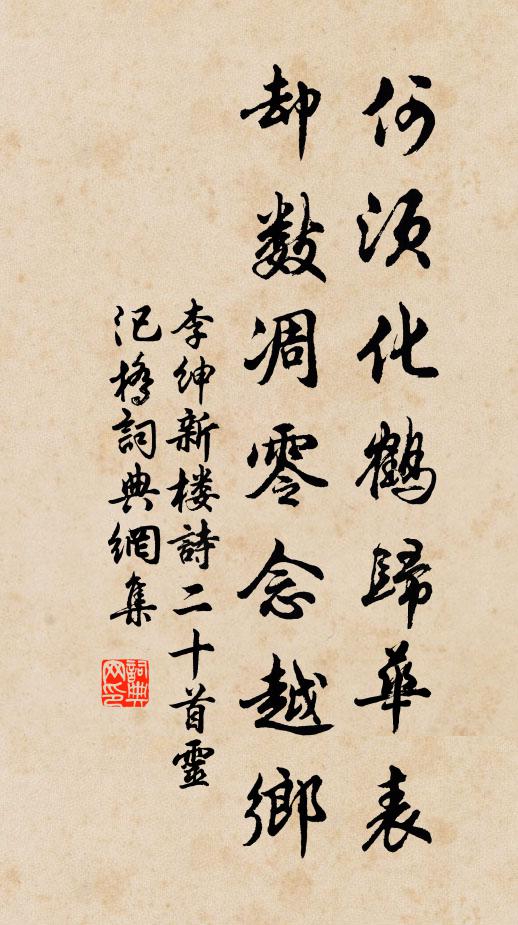 何須化鶴歸華表
却數凋零念越鄉
李紳新楼詩二十首靈
汜橋詞典網集
詞典网印